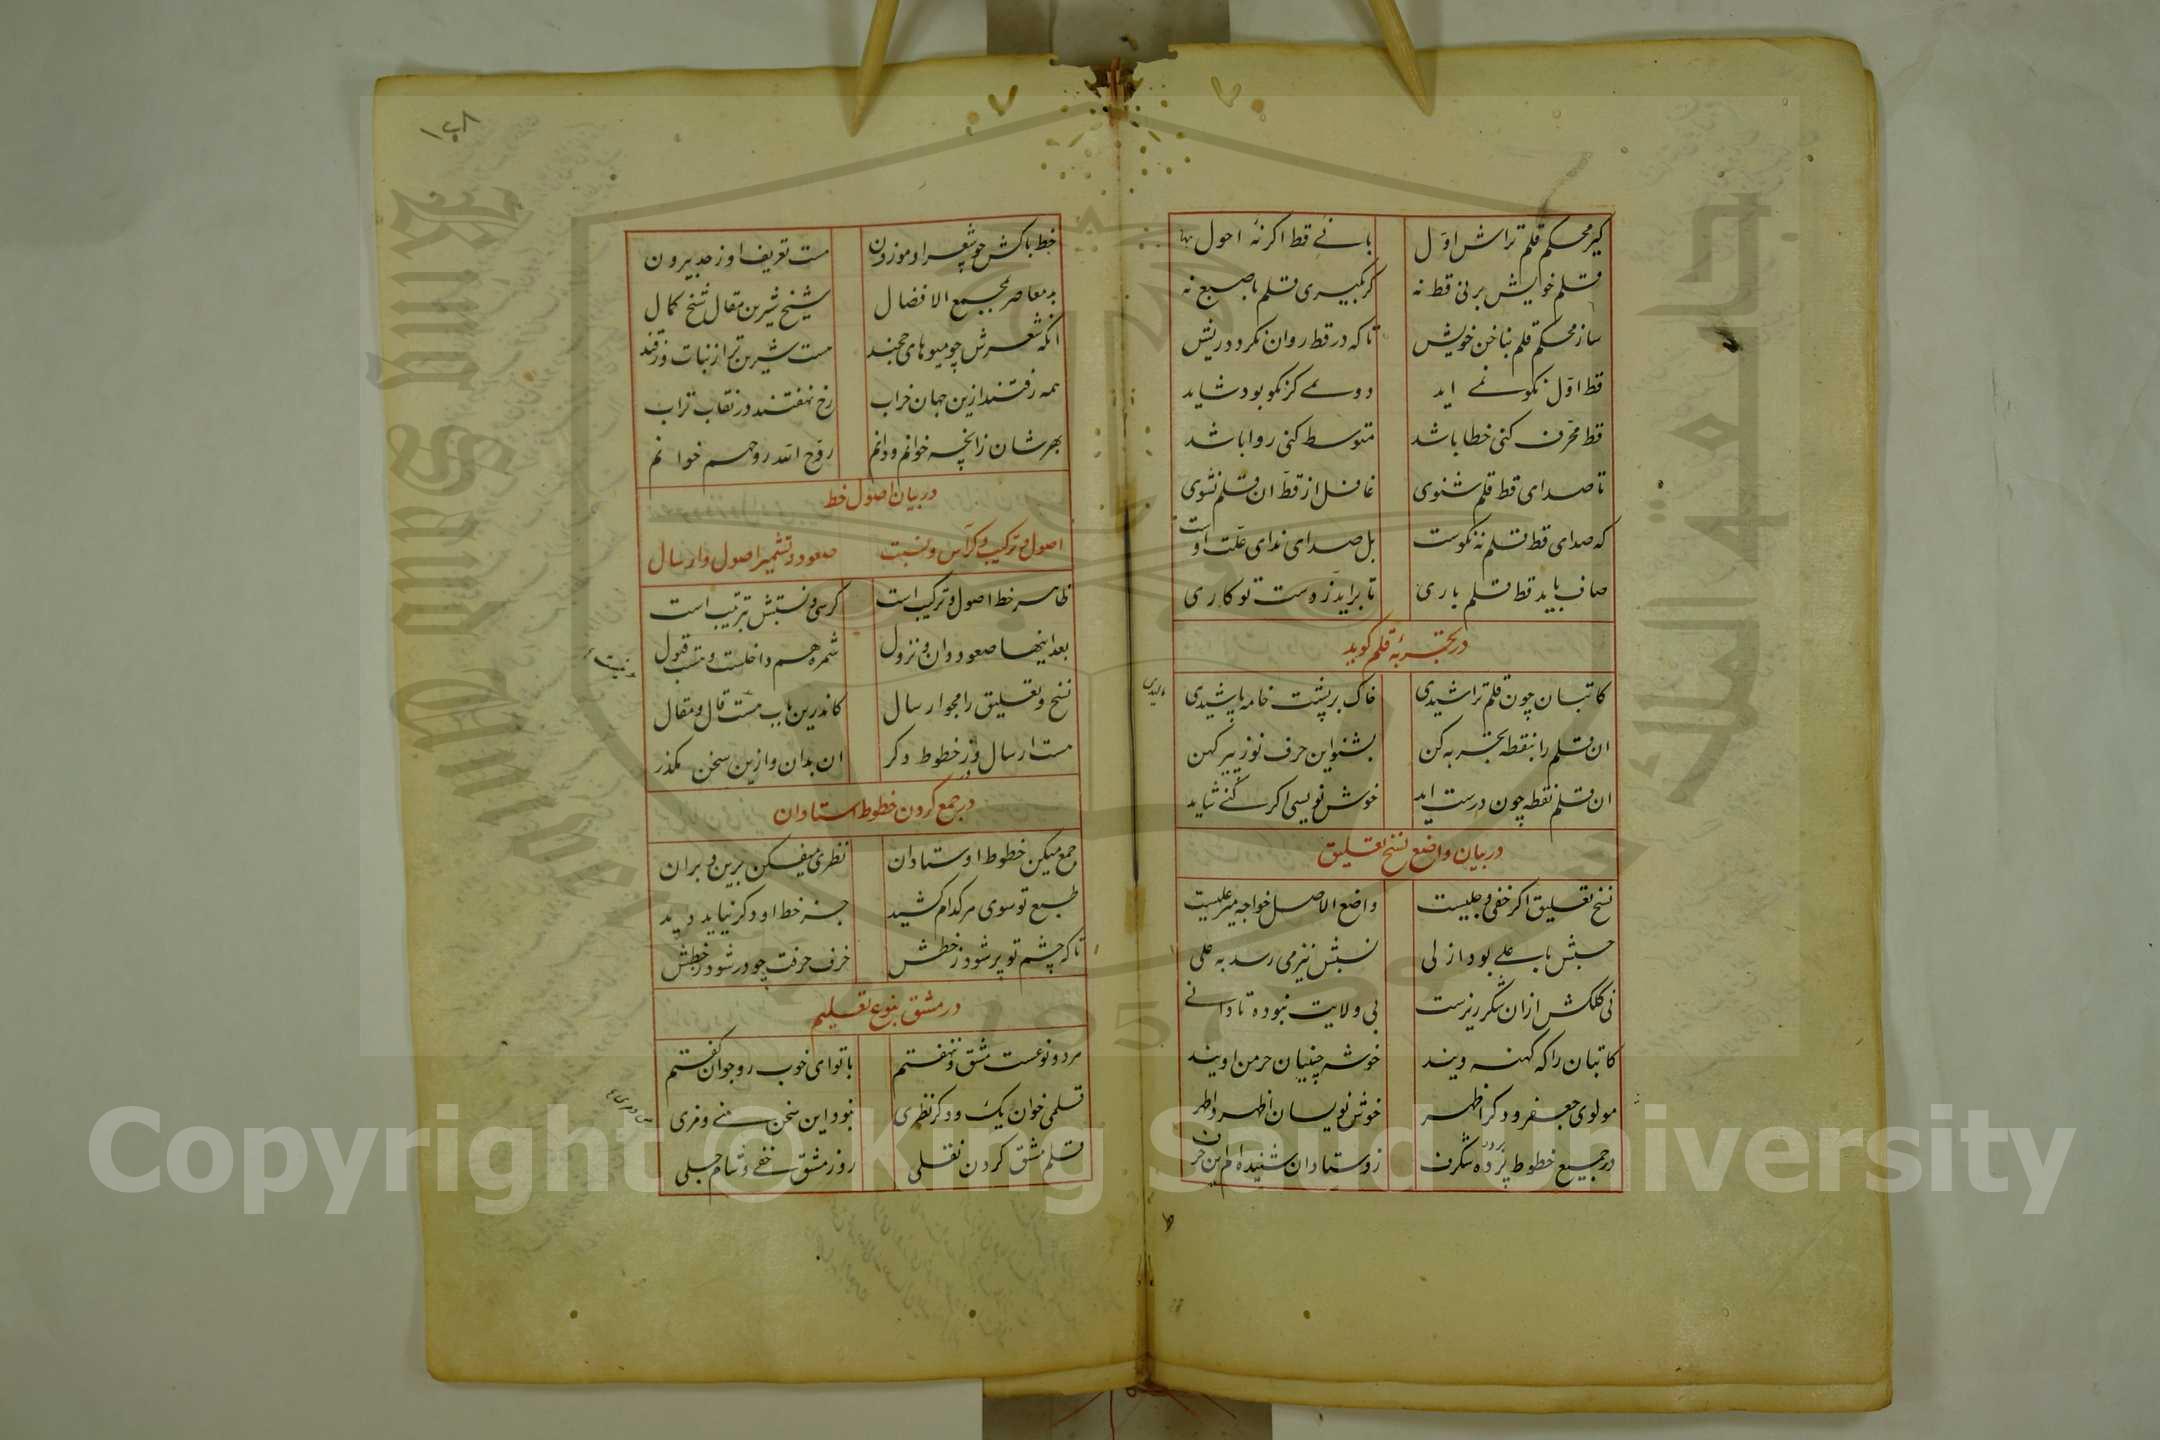 گیر محکم قلم تراش اول
بانی قط اگر نه احول
قلم خویش بر نی قط نه
گر بگیری قلم باصبع نه
ساز محکم قلم بناخن خویش
تا که در قط روان نگردد ریش
قط اول نکو نمی اید
دومی کز نکو بود شاید
قط محرف کنی خطا باشد
متوسط کنی روا باشد
تا صدای قط قلم شنوی
غافل از قط ان قلم نشوی
که صدای قط قلم نه نکوست
بل صدای ندای علت اوست
صاف باید قط قلم باری
تا براید ز دست تو کاری
در تجربه قلم گوید
کاتبان چون قلم تراشیدی
خاک بر پشت خامه پاشیدی
ان قلم را بنقطه تجربه کن
بشنو این حرف نو ز پیر کهن
ان قلم نقطه چون درست اید
خوش نویسی اگر کنی شاید
در بیان واضع نسخ تعلیق
نسخ تعلیق اگر خفی و جلیست
واضع الاصل خواجه میر علیست
نسبتش نیز می رسد به علی
نی کلکش ازان شکر ریزست
کاتبان را که کهنه و یند
خوشه چینیان خرمن اویند
مولوی جعفر و دگر اظهر
خوش نویسان اظهر و اطهر
در جمیع خطوط بوده شگرف
ز وستادان شنیده ام این حرف
خط پاکش چو شعر او موزون
هست تعریف او ز حد بیرون
بد معاصر بمجمع الافضال
شیخ شیرین مقال شیخ کمال
انکه شعرش چو میوهای خجند
هست شیرین تر از نبات و ز قند
همه رفتند ازین جهان خراب
رخ نهفتند در نقاب تراب
بهرشان زانچه خوانم و دانم
روح الله روحهم خوانم
در بیان اصول خط
اصول و ترکیب و کراس و نسبت
صعود و تشمیر اصول و ارسال
ظاهر خط اصول و ترکیب است
کرسی و نسبتش بترتیب است
بعد اینها صعود دان و نزول
شمره هم داخلست و هست قبول
نسخ و تعلیق را مجو ارسال
کاندرین باب هست قال و مقال
هست ارسال در خطوط دگر
ان بدان و ازین سخن مگذر
در جمع کردن خطوط استادان
جمع میکن خطوط اوستادان
نظری میفکن برین و بران
طبع تو سوی هر کدام کشید
جز خط او دگر نباید دید
تا که چشم تو پر شود ز خطش
حرف حرفت چو در شود ز خطش
در مشق بنوع تعلیم
مر دو نوعست مشق و ننهفتم
با تو ای خوب رو جوان گفتم
قلمی خوان یک و دگر نظری
نبود این سخن منی و مری
قلم مشق کردن نقلی
روز مشق خفی و شام جلی
Copyright © King Saud University
King Saud University
1957